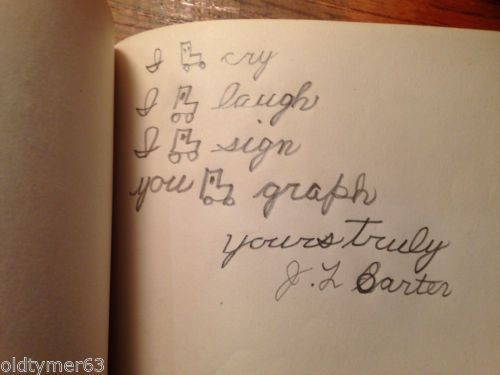 I cry
I laugh
I sign
you graph
yours truly
J. L Carter
oldtymer63